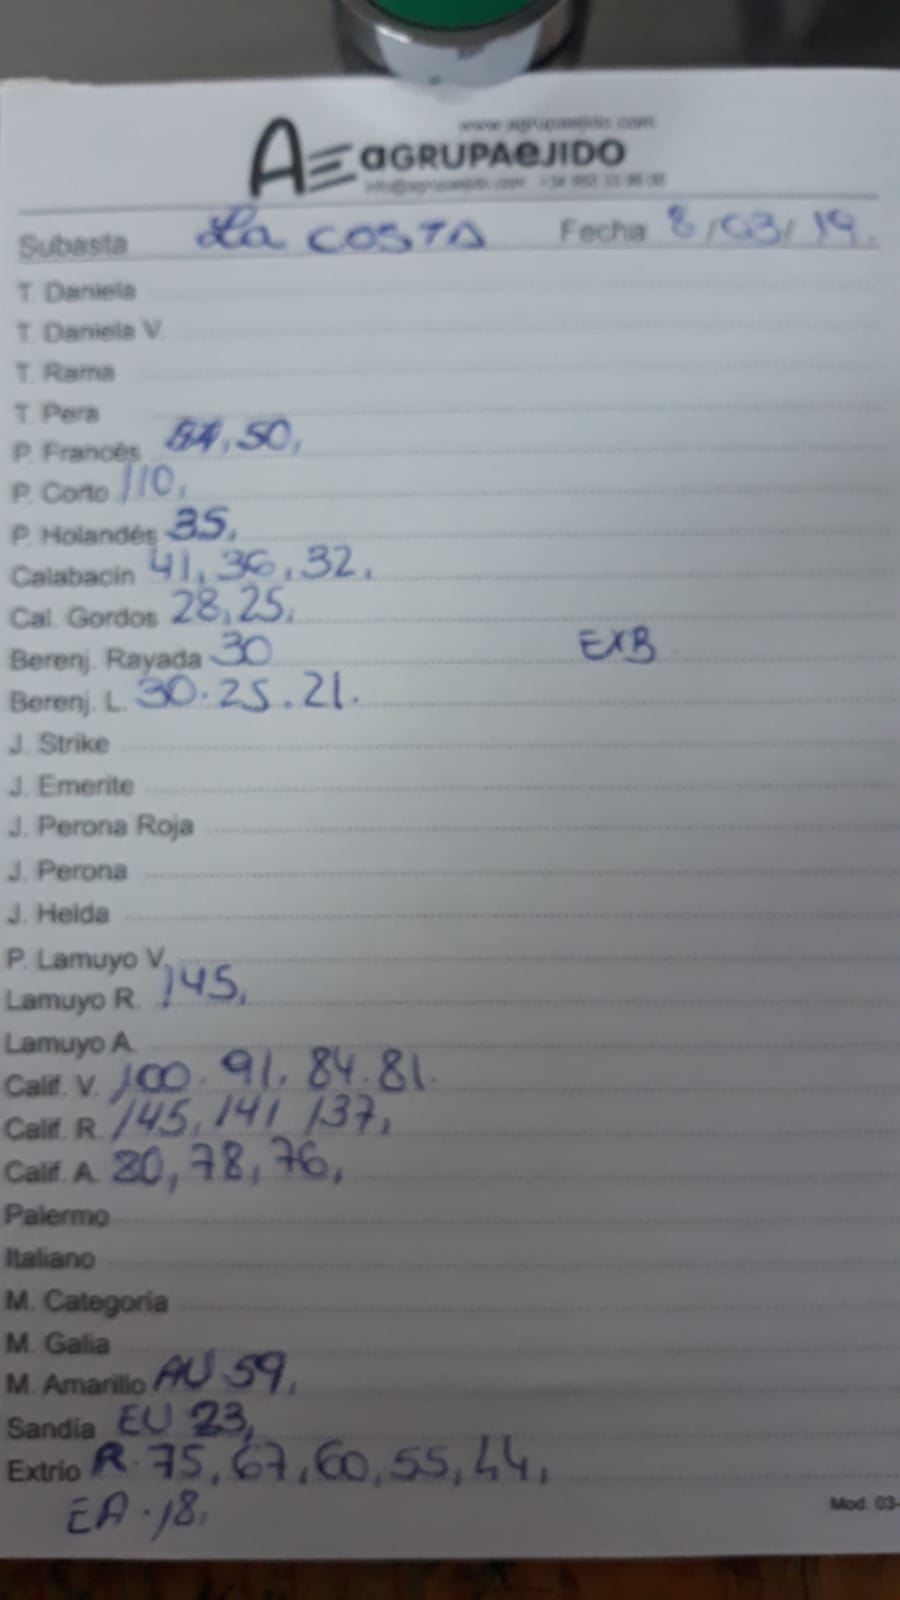 www.agrupaejido.com
AGRUPAEJIDO
Subasta La COSTA Fecha 8/03/19.
T. Daniela
T. Daniela V.
T. Rama
T. Pera
P. Francés 54, 50,
P. Corto 110,
P. Holandés 35,
Calabacín 41, 36, 32,
Cal. Gordos 28, 25,
Berenj. Rayada 30 EXB
Berenj. L. 30. 25. 21.
J. Strike
J. Emerite
J. Perona Roja
J. Perona
J. Helda
P. Lamuyo V.
Lamuyo R. 145,
Lamuyo A.
Calif. V. 100. 91. 84. 81.
Calif. R. 145, 141 137,
Calif. A. 80, 78, 76,
Palermo
Italiano
M. Categoría
M. Galia
M. Amarillo AU 59,
Sandía EU 23,
Extrio R. 75, 67, 60, 55, 44,
EA. 18,
Mod. 03-